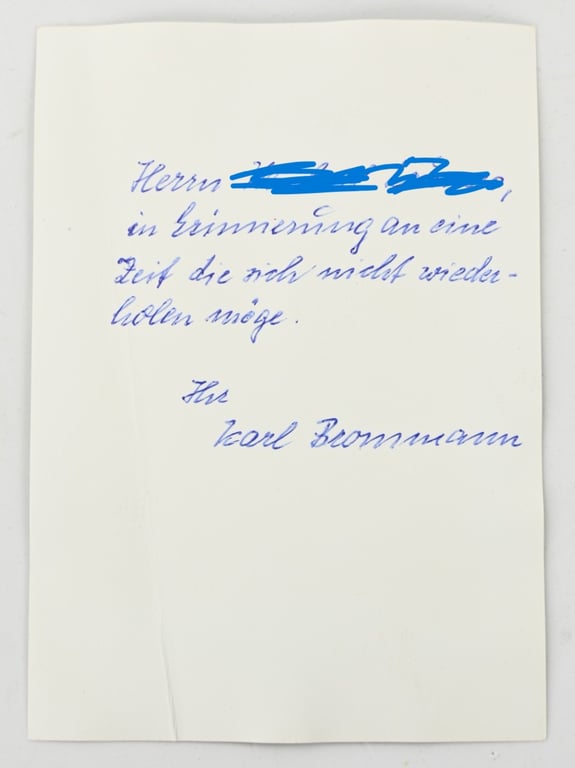 Herrn
in Erinnerung an eine
Zeit die sich nicht wieder-
holen möge.
Ihr
Karl Brommann